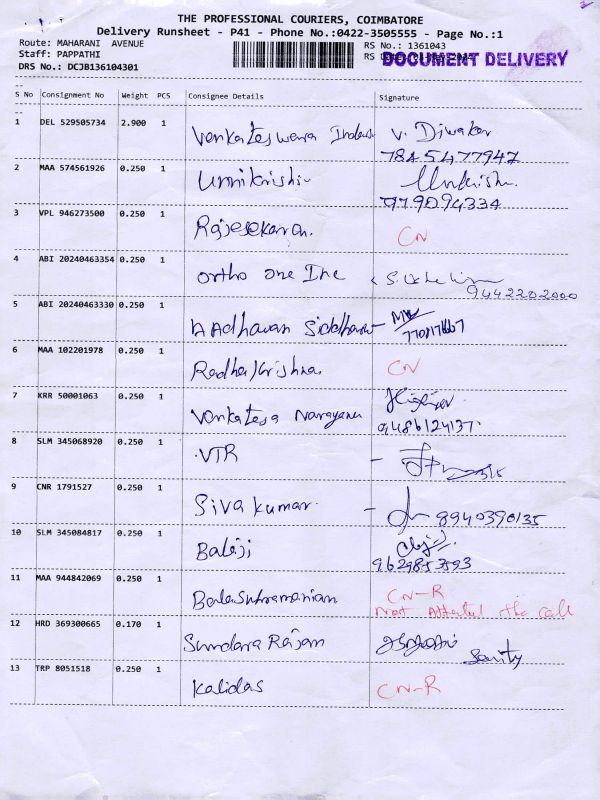 THE PROFESSIONAL COURIERS, COIMBATORE
Delivery Runsheet - P41 - Phone No.:0422-3505555 - Page No.:1
Route: MAHARANI AVENUE
Staff: PAPPATHI
DRS No.: DCJB136104301
RS No.: 1361043
RS
DOCUMENT DELIVERY
S No Consignment No Weight PCS Consignee Details Signature
1 DEL 529505734 2.900 1 Venkateswara V. Diwakar
7845477947
2 MAA 574561926 0.250 1 Unnikrishn
979094334
3 VPL 946273500 0.250 1 Rajesekaran. CN
4 ABI 20240463354 0.250 1 Ortho one Inc
9442202000
5 ABI 20240463330 0.250 1 Aadhavan
6 MAA 102201978 0.250 1 Radhakrishna CN
7 KRR 50001063 0.250 1 Venkatesa Narayana
9486124137
8 SLM 345068920 0.250 1 VTR
9 CNR 1791527 0.250 1 Siva kumar 8940390135
10 SLM 345084817 0.250 1 Balaji
9629853593
11 MAA 944842069 0.250 1 Balasubramaniam CN-R
Not Attended the call
12 HRD 369300665 0.170 1 Sundara Rajan
13 TRP 8051518 0.250 1 Kalidas CN-R